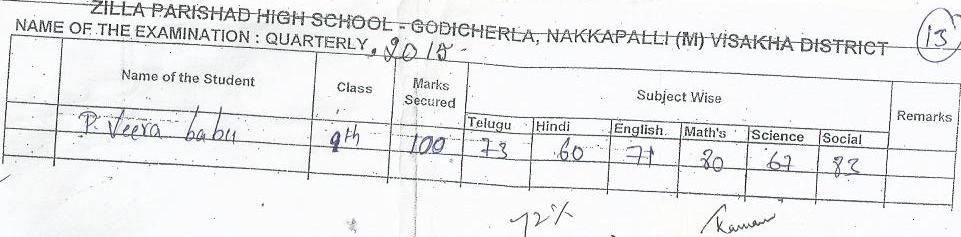 ZILLA PARISHAD HIGH SCHOOL - GODICHERLA, NAKKAPALLI (M) VISAKHA DISTRICT
13
NAME OF THE EXAMINATION : QUARTERLY, 2015.
Name of the Student Class Marks Secured Subject Wise Remarks
Telugu Hindi English. Math's Science Social
P. Veera babu 9th 100 73 60 71 80 67 83
72%